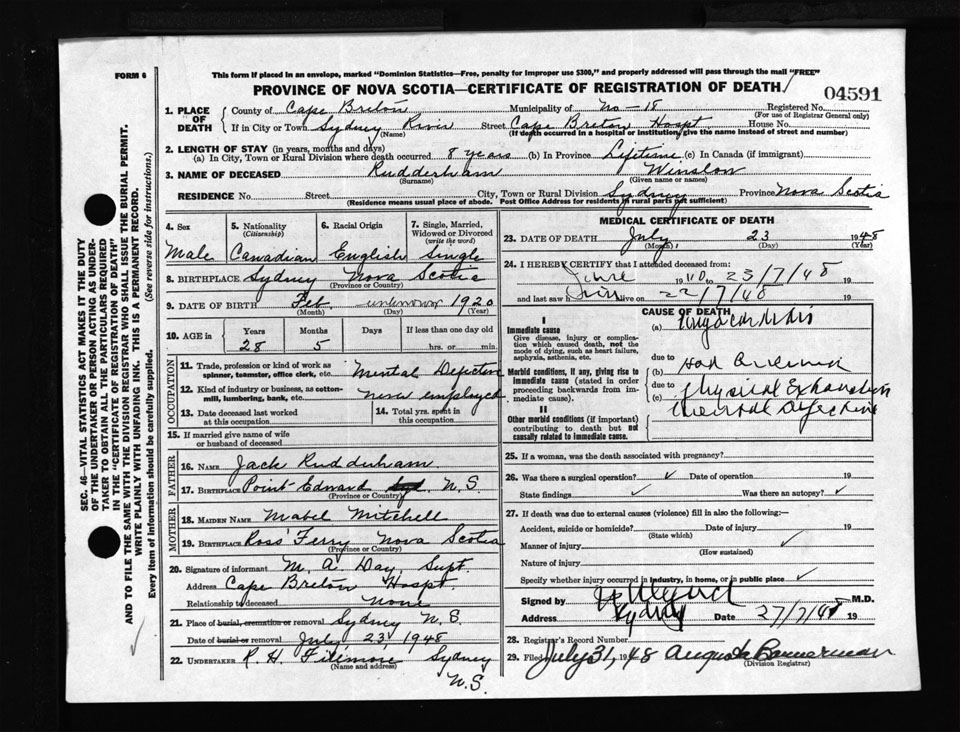 FORM 6
This form if placed in an envelope, marked "Dominion Statistics—Free, penalty for improper use $300," and properly addressed will pass through the mail "FREE"
PROVINCE OF NOVA SCOTIA—CERTIFICATE OF REGISTRATION OF DEATH
04591
1. PLACE OF DEATH
County of Cape Breton Municipality of No-18 Registered No.
(For use of Registrar General only)
If in City or Town Sydney River Street Cape Breton Hospt House No.
(Name) (If death occurred in a hospital or institution, give the name instead of street and number)
2. LENGTH OF STAY (in years, months and days)
(a) In City, Town or Rural Division where death occurred 8 years (b) In Province Lifetime (c) In Canada (if immigrant)
3. NAME OF DECEASED Rudderham Winslow
(Surname) (Given name or names)
RESIDENCE No. Street City, Town or Rural Division Sydney Province Nova Scotia
(Residence means usual place of abode. Post Office Address for residents in rural parts not sufficient)
4. Sex
5. Nationality (Citizenship)
6. Racial Origin
7. Single, Married, Widowed or Divorced (write the word)
Male Canadian English Single
8. BIRTHPLACE Sydney Nova Scotia
(Province or Country)
9. DATE OF BIRTH Feb unknown 1920
(Month) (Day) (Year)
10. AGE in Years Months Days If less than one day old
28 5 hrs. or min.
OCCUPATION
11. Trade, profession or kind of work as spinner, teamster, office clerk, etc. Mental Defective
12. Kind of industry or business, as cotton-mill, lumbering, bank, etc. employed
13. Date deceased last worked at this occupation
14. Total yrs. spent in this occupation
15. If married give name of wife or husband of deceased
FATHER
16. NAME Jack Rudderham
17. BIRTHPLACE Point Edward N.S.
(Province or Country)
MOTHER
18. MAIDEN NAME Mabel Mitchell
19. BIRTHPLACE Ross' Ferry Nova Scotia
(Province or Country)
20. Signature of informant M. A. Day, Supt.
Address Cape Breton Hospt.
Relationship to deceased None
21. Place of burial, cremation or removal Sydney N.S.
Date of burial or removal July, 23, 1948
22. UNDERTAKER R. H. Fillmore Sydney
N.S.
MEDICAL CERTIFICATE OF DEATH
23. DATE OF DEATH July 23 1948
(Month) (Day) (Year)
24. I HEREBY CERTIFY that I attended deceased from:
June 1940 to 23/7/48 19
and last saw him alive on 22/7/48 19
CAUSE OF DEATH
I
Immediate cause
Give disease, injury or complication which caused death, not the mode of dying, such as heart failure, asphyxia, asthenia, etc.
(a) Myocarditis
due to
Morbid conditions, if any, giving rise to immediate cause (stated in order proceeding backwards from immediate cause).
(b) Had
due to
(c) Physical Exhaustion
II
Other morbid conditions (if important) contributing to death but not causally related to immediate cause.
Mental Defective
25. If a woman, was the death associated with pregnancy?
26. Was there a surgical operation? ✓ Date of operation 19
State findings ✓ Was there an autopsy? ✓
27. If death was due to external causes (violence) fill in also the following:—
Accident, suicide or homicide? Date of injury 19
(State which)
Manner of injury ✓
(How sustained)
Nature of injury
Specify whether injury occurred in industry, in home, or in public place ✓
Signed by M.D.
Address Sydney Date 27/7/48 19
28. Registrar's Record Number
29. Filed July 31, 1948 Augusta Bannerman
(Division Registrar)
SEC. 46—VITAL STATISTICS ACT MAKES IT THE DUTY
OF THE UNDERTAKER OR PERSON ACTING AS UNDER-
TAKER TO OBTAIN ALL THE PARTICULARS REQUIRED
IN THE "CERTIFICATE OF REGISTRATION OF DEATH"
AND TO FILE THE SAME WITH THE DIVISION REGISTRAR WHO SHALL ISSUE THE BURIAL PERMIT.
WRITE PLAINLY WITH UNFADING INK. THIS IS A PERMANENT RECORD.
Every item of information should be carefully supplied. (See reverse side for instructions.)